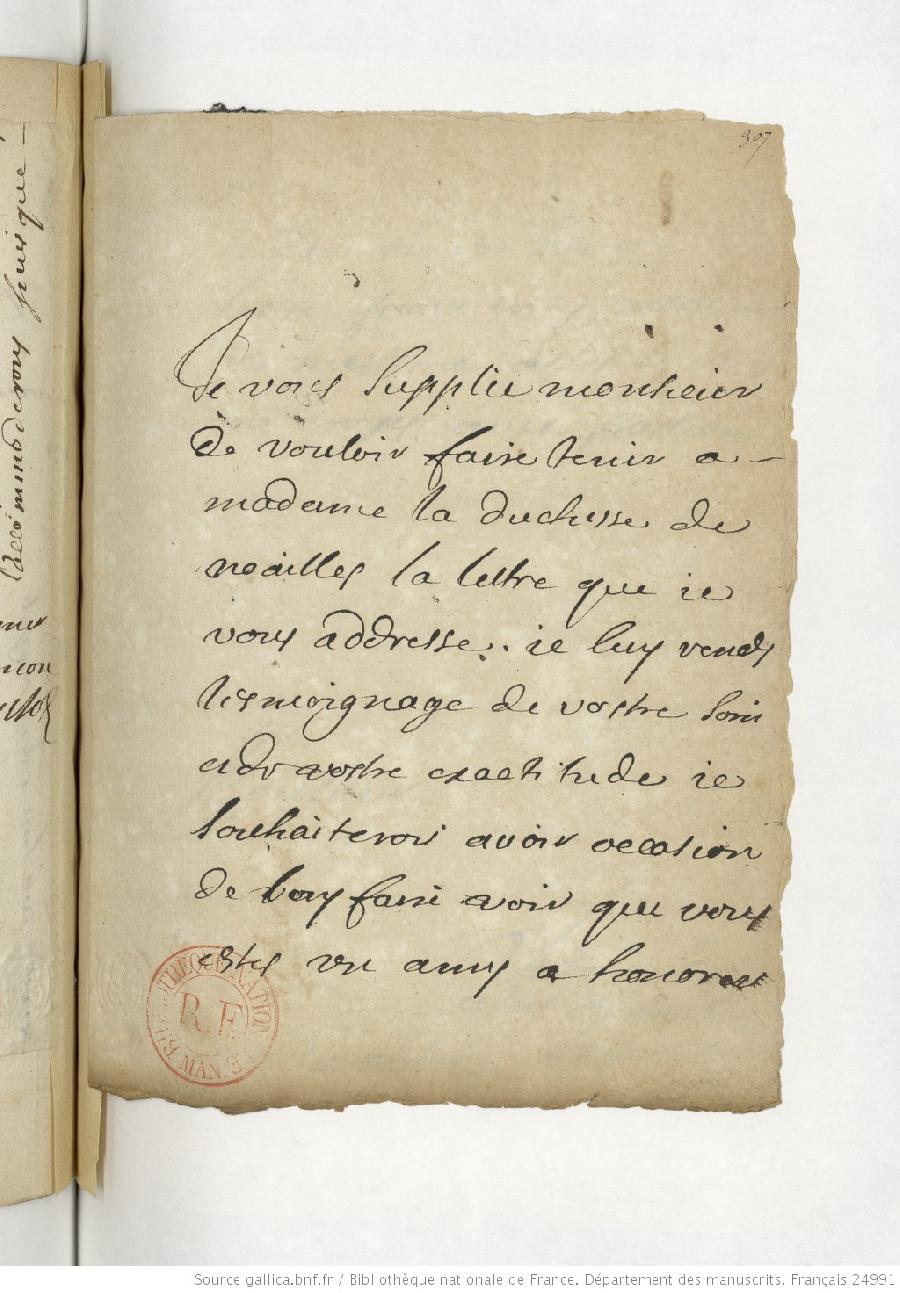 307
Je vous supplie monsieur
de vouloir faire tenir a
madame la duchesse de
noailles la lettre que ie
vous addresse. ie luy rends
tesmoignage de vostre soin
et de vostre exactitude ie
souhaiterois avoir occasion
de vous faire voir que vous
estes un amy a honorer
R.F.
puis que
Source gallica.bnf.fr / Bibliothèque nationale de France. Département des manuscrits. Français 24991